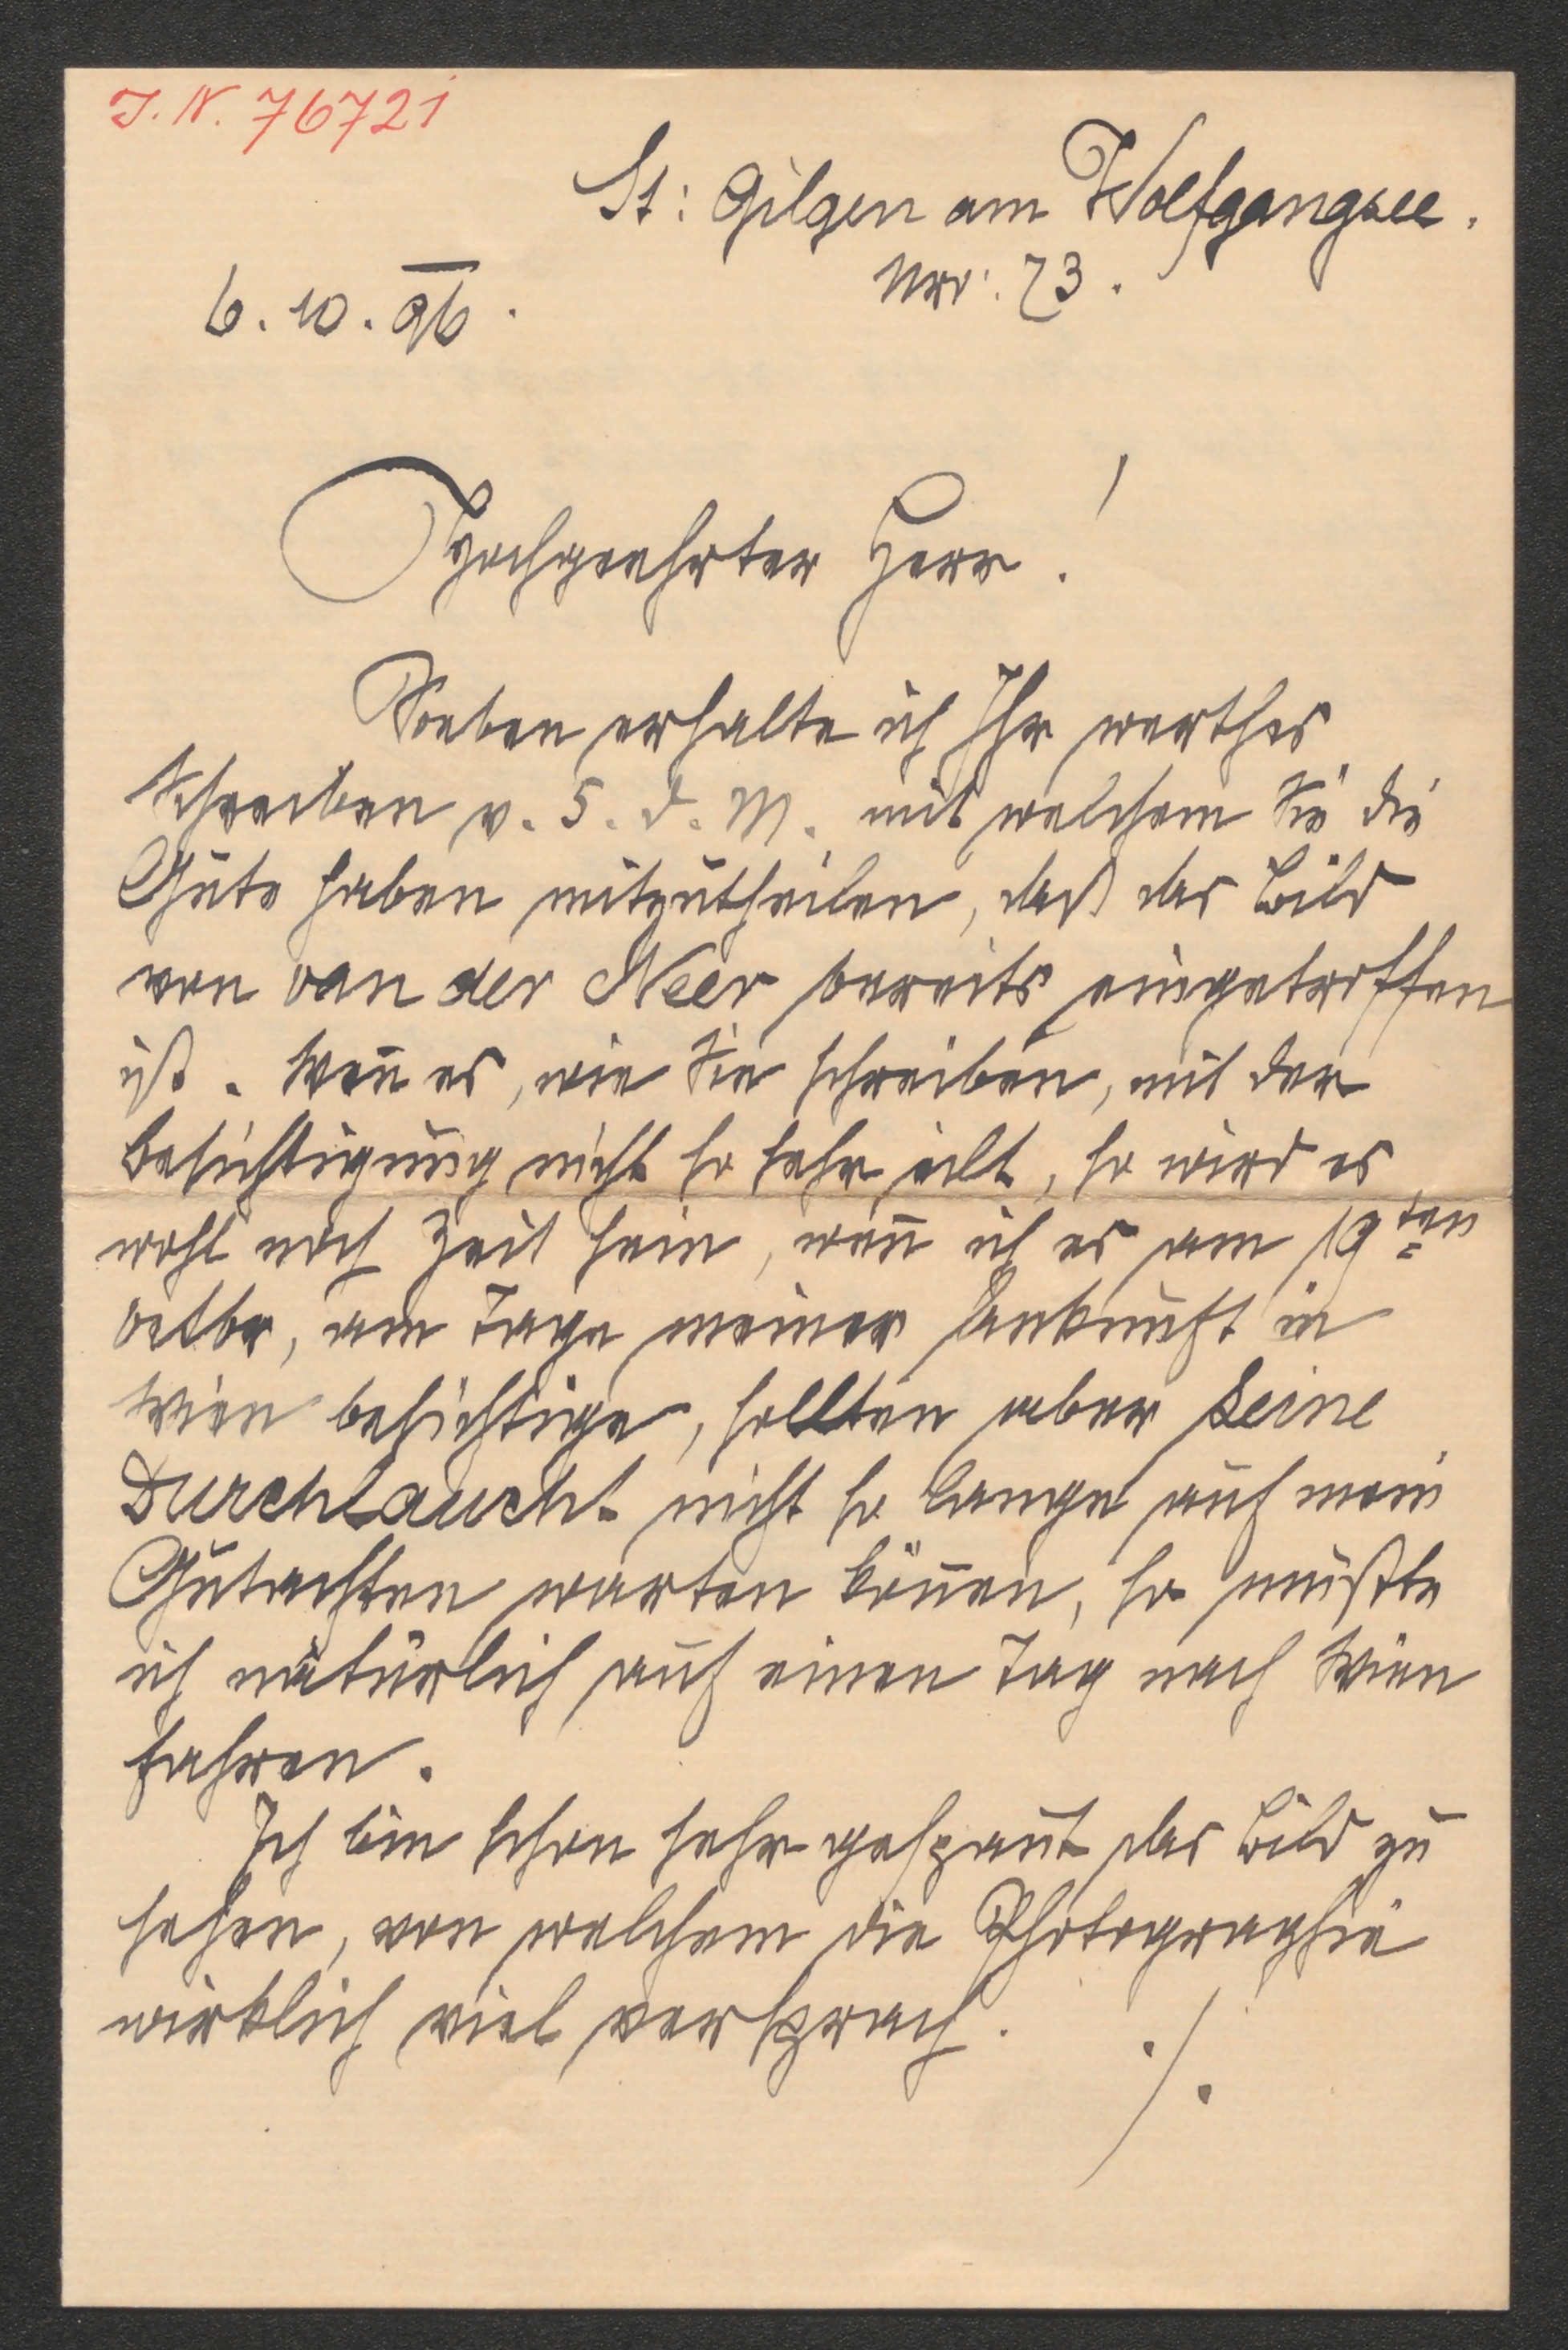 J. N. 76721
St: Gilgen am Wolfgangsee.
Nro: 73.
6. 10. 96.
Hochgeehrter Herr!
Soeben erhalte ich Ihr werthes
Schreiben v. 5. d. M. mit welchem Sie die
Güte haben mitzutheilen, daß das Bild
von van der Neer bereits eingetroffen
ist. Wen̄ es, wie Sie schreiben, mit der
Besichtigung nicht so sehr eilt, so wird es
wohl noch Zeit sein, wen̄ ich es am 19ten
Octbr, am Tage meiner Ankunft in
Wien besichtige, sollten aber Seine
Durchlaucht nicht so lange auf mein
Gutachten warten kön̄en, so müßte
ich natürlich auf einen Tag nach Wien
fahren.
Ich bin schon sehr gespan̄t das Bild zu
sehen, von welchem die Photographie
wirklich viel versprach.
./.